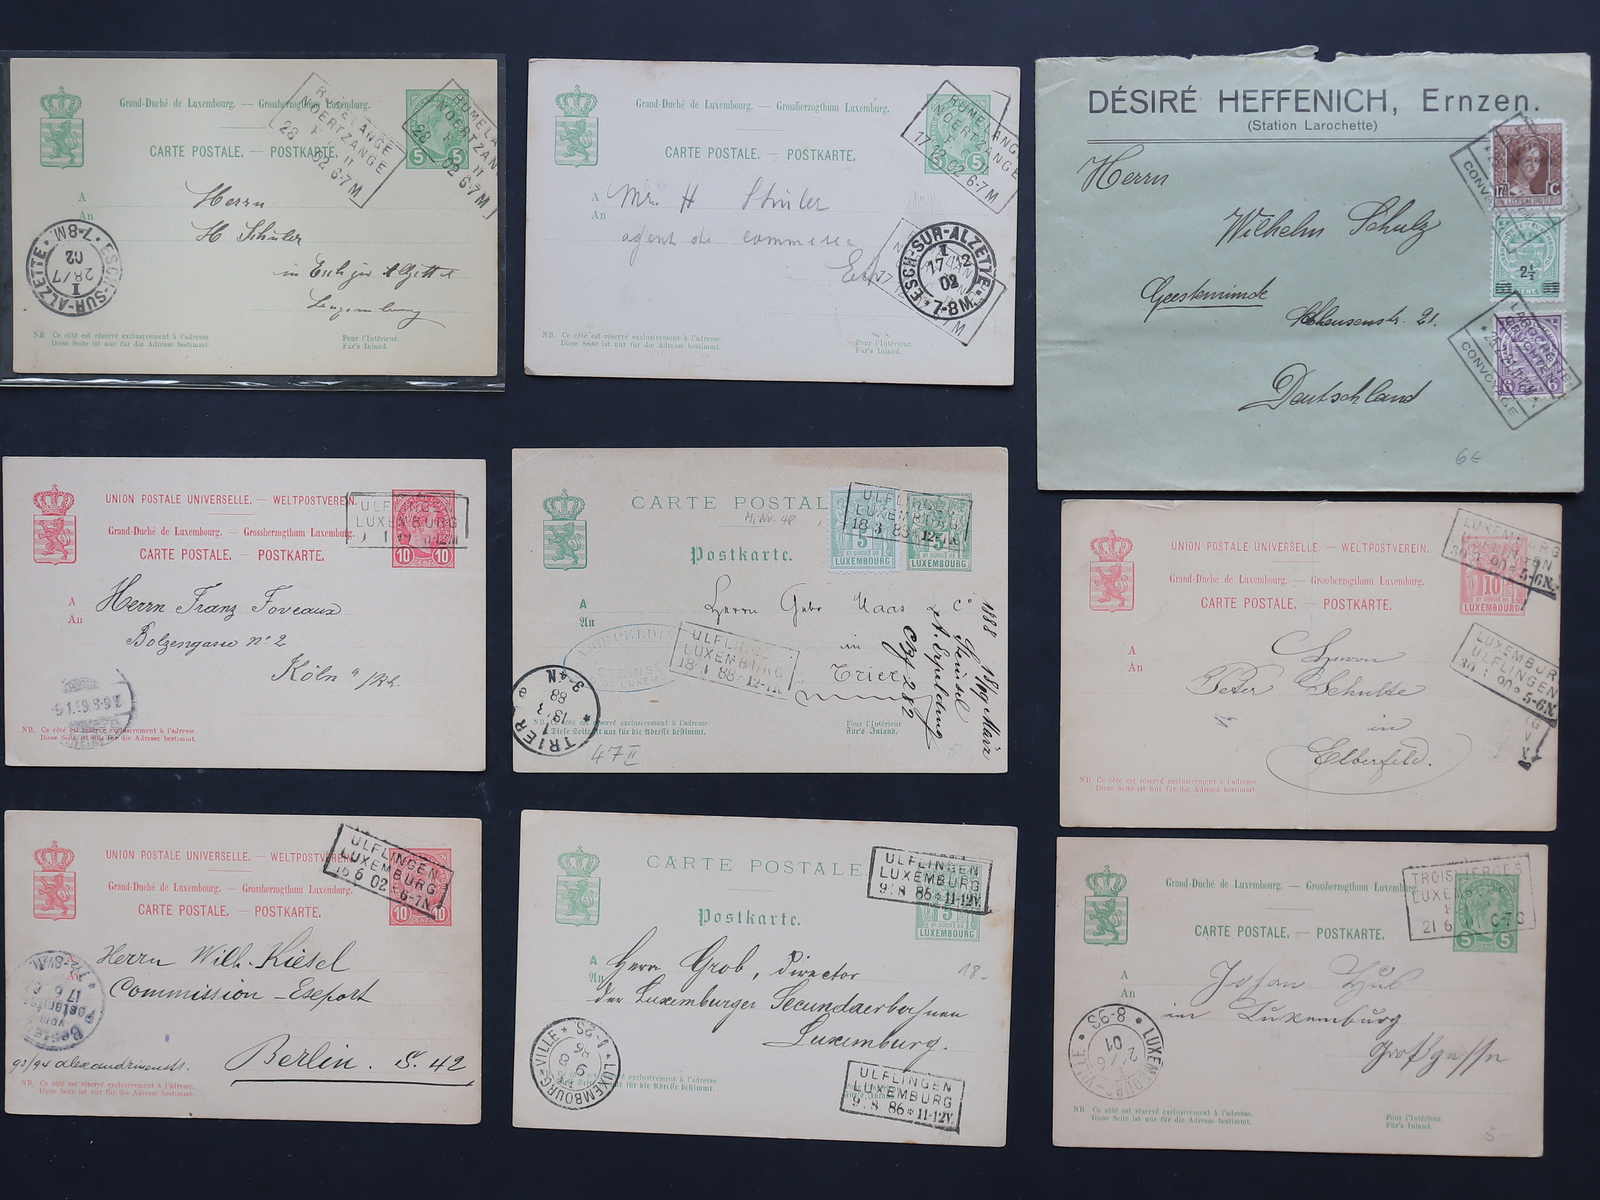 Grand-Duché de Luxembourg. — Grossherzogthum Luxemburg.
CARTE POSTALE. — POSTKARTE.
RUMELANGE
NOERTZANGE
28 02 6-7M
5 5
A
An
Herrn
H Schüler
in Esch
Luxemburg
ESCH-SUR-ALZETTE
28/7
02
7-8M
NB. Ce côté est réservé exclusivement à l'adresse
Diese Seite ist nur für die Adresse bestimmt.
Pour l'Intérieur.
Für's Inland.
Grand-Duché de Luxembourg. — Grossherzogthum Luxemburg.
CARTE POSTALE. — POSTKARTE.
RUMELANGE
NOERTZANGE
17 12 02 6-7M
5
A
An
Mr. H Schüler
agent de commerce
ESCH-SUR-ALZETTE
17 12
02
7-8M
NB. Ce côté est réservé exclusivement à l'adresse
Diese Seite ist nur für die Adresse bestimmt.
Pour l'Intérieur.
Für's Inland.
DÉSIRÉ HEFFENICH, Ernzen.
(Station Larochette)
Herrn
Wilhelm Schulz
Geestemünde
21.
Deutschland
17½ C
2½
6 6
LAROCHETTE
CRUCHTEN
CONVOYAGE
6€
UNION POSTALE UNIVERSELLE. — WELTPOSTVEREIN.
Grand-Duché de Luxembourg. — Grossherzogthum Luxemburg.
CARTE POSTALE. — POSTKARTE.
ULFLINGEN
LUXEMBURG
10 10
A
An
Herrn Franz Foveaux
Bolzengasse No 2
Köln a/Rh.
NB. Ce côté est réservé exclusivement à l'adresse
Diese Seite ist nur für die Adresse bestimmt.
CARTE POSTALE
Postkarte.
Mi.Nr. 48
ULFLINGEN
LUXEMBURG
18 3 88 12-1N
5 5
LUXEMBOURG
LUXEMBOURG
A
An
Herrn Gebr Haas Co
in
Trier
ULFLINGEN
LUXEMBURG
18 3 88 12-1N
TRIER
1
19 3
88
3-4N
1888 18/19 März
47 II
NB. Ce côté est réservé exclusivement à l'adresse
Diese Seite ist nur für die Adresse bestimmt.
Pour l'Intérieur.
Für's Inland.
UNION POSTALE UNIVERSELLE. — WELTPOSTVEREIN.
Grand-Duché de Luxembourg. — Grossherzogthum Luxemburg.
CARTE POSTALE. — POSTKARTE.
LUXEMBURG
ULFLINGEN
30 1 90 5-6N
10
LUXEMBOURG
LUXEMBURG
ULFLINGEN
30 1 90 5-6N
A
An
Herrn
Peter Schulte
in
Elberfeld.
NB. Ce côté est réservé exclusivement à l'adresse.
Diese Seite ist nur für die Adresse bestimmt.
UNION POSTALE UNIVERSELLE. — WELTPOSTVEREIN.
Grand-Duché de Luxembourg. — Grossherzogthum Luxemburg.
CARTE POSTALE. — POSTKARTE.
ULFLINGEN
LUXEMBURG
16 6 02 6-7N
10 10
Herrn Wilh. Kiesel
Commission - Export
Berlin. S. 42
93/94 Alexandrinenstr.
17 6 02
NB. Ce côté est réservé exclusivement à l'adresse
Diese Seite ist nur für die Adresse bestimmt.
CARTE POSTALE.
Postkarte.
ULFLINGEN
LUXEMBURG
9 8 86 11-12V.
5
LUXEMBOURG
A
An
18-
Herrn Grob, Director
der Luxemburger Secundaerbahnen
Luxemburg.
LUXEMBOURG-VILLE
9 8
86
ULFLINGEN
LUXEMBURG
9 8 86 11-12V.
Grand-Duché de Luxembourg. — Grossherzogthum Luxemburg.
CARTE POSTALE. — POSTKARTE.
TROISVIERGES
LUXEMBOURG
21 6 01
5 5
A
An
in Luxemburg
Großgasse
LUXEMBOURG-VILLE
21/6
01
8-9S
NB. Ce côté est réservé exclusivement à l'adresse.
Diese Seite ist nur für die Adresse bestimmt.
Pour l'Intérieur.
Für's Inland.
5-